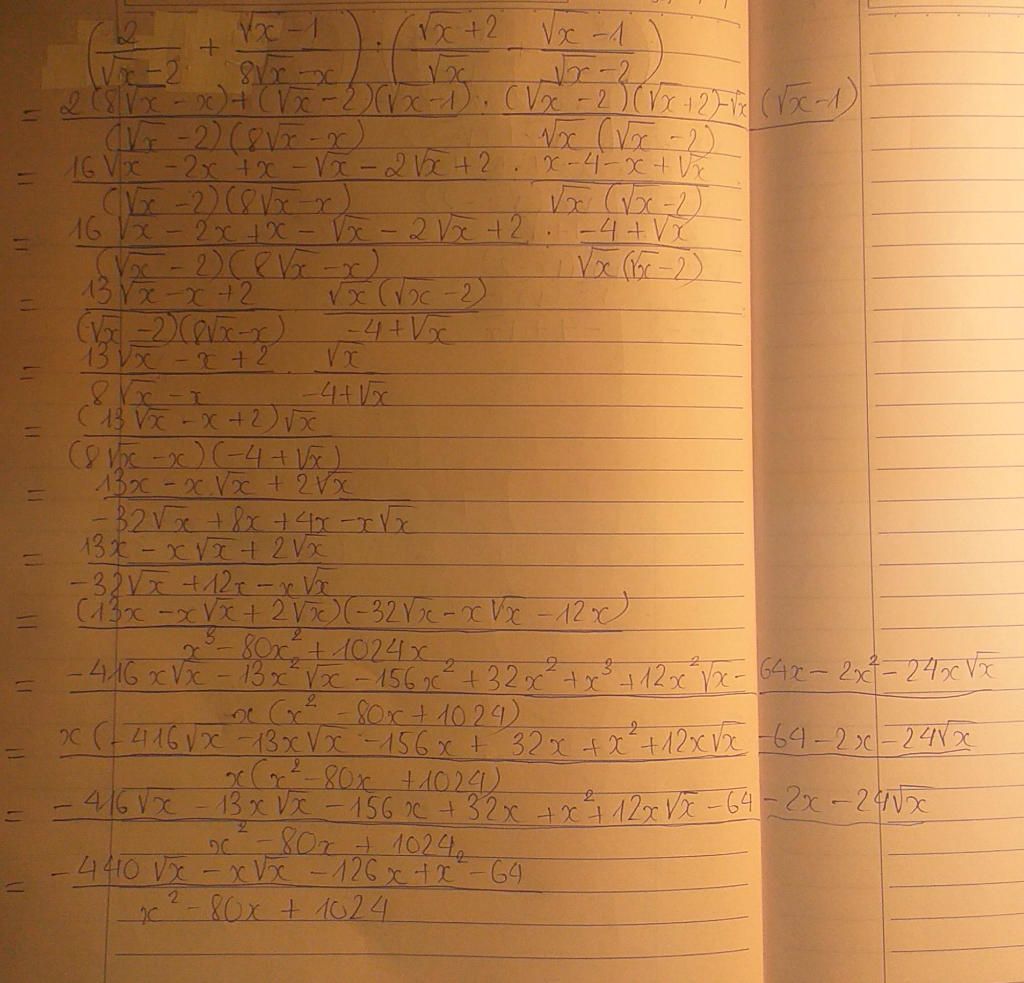 (2/(√x-2) + (√x-1)/(8√x-x)) : ((√x+2)/√x - (√x-1)/(√x-2))
= (2(8√x-x)+(√x-2)(√x-1))/((√x-2)(8√x-x)) : ((√x-2)(√x+2)-√x(√x-1))/(√x(√x-2))
= (16√x-2x+x-√x-2√x+2)/((√x-2)(8√x-x)) : (x-4-x+√x)/(√x(√x-2))
= (16√x-2x+x-√x-2√x+2)/((√x-2)(8√x-x)) : (-4+√x)/(√x(√x-2))
= (13√x-x+2)/((√x-2)(8√x-x)) . (√x(√x-2))/(-4+√x)
= (13√x-x+2)/(8√x-x) . √x/(-4+√x)
= ((13√x-x+2)√x)/((8√x-x)(-4+√x))
= (13x-x√x+2√x)/(-32√x+8x+4x-x√x)
= (13x-x√x+2√x)/(-32√x+12x-x√x)
= ((13x-x√x+2√x)(-32√x-x√x-12x))/(x³-80x²+1024x)
= (-416x√x-13x²√x-156x²+32x²+x³+12x²√x-64x-2x²-24x√x)/(x(x²-80x+1024))
= (x(-416√x-13x√x-156x+32x+x²+12x√x-64-2x-24√x)/(x(x²-80x+1024))
= (-416√x-13x√x-156x+32x+x²+12x√x-64-2x-24√x)/(x²-80x+1024)
= (-440√x-x√x-126x+x²-64)/(x²-80x+1024)